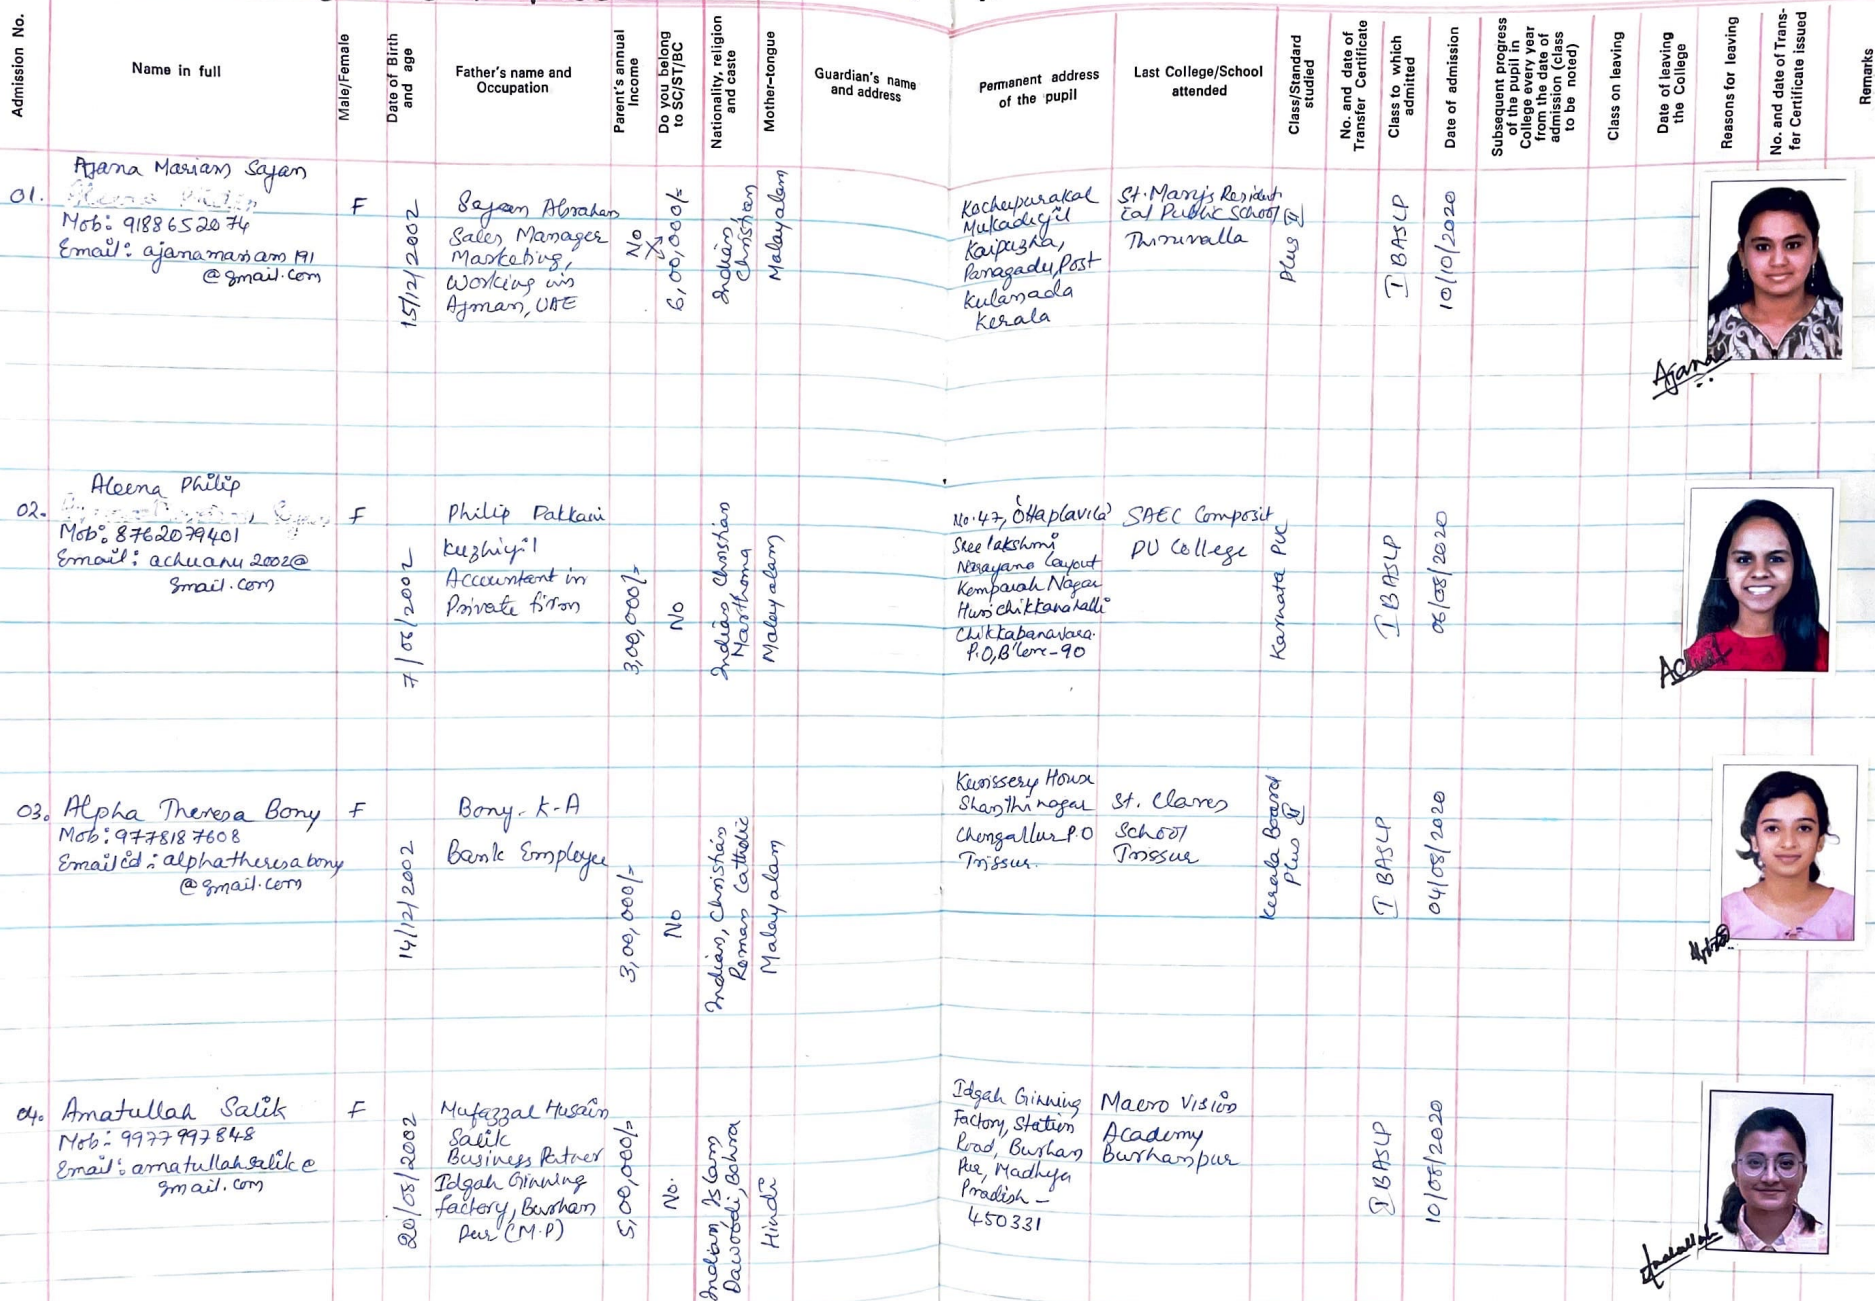 Admission No.
Name in full
Male/Female
Date of Birth
and age
Father's name and
Occupation
Parent's annual
Income
Do you belong
to SC/ST/BC
Nationality, religion
and caste
Mother-tongue
Guardian's name
and address
Permanent address
of the pupil
Last College/School
attended
Class/Standard
studied
No. and date of
Transfer Certificate
Class to which
admitted
Date of admission
Subsequent progress
of the pupil in
College every year
from the date of
admission (class
to be noted)
Class on leaving
Date of leaving
the College
Reasons for leaving
No. and date of Trans-
fer Certificate issued
Remarks
01.
Ajana Mariam Sajan
Mob: 9188652074
Email: ajanamariam191
@gmail.com
F
15/12/2002
Sajan Abraham
Sales Manager
Marketing,
Working in
Ajman, UAE
No
6,00,000/=
Indian
Christian
Malayalam
Kochupurakal
Mukadiyil
Kaipuzha,
Panagadu, Post
Kulanada
Kerala
St. Mary's Resident
ial Public School
Thiruvalla
Plus II
I BASLP
10/10/2020
Ajana
02.
Aleena Philip
Mob: 8762079401
Email: achuanu2002@
gmail.com
F
7/08/2002
Philip Pakkani
Kuzhiyil
Accountant in
Private firm
3,00,000/=
No
Indian Christian
Marthoma
Malayalam
No.47, Ottaplavila
Sree lakshmi
Narayana Layout
Kemparah Nagar
Hurichikkanahalli
Chikkabanavara.
P.O, B'lore-90
SAEC Composit
PU College
Karnata PUC
I BASLP
06/08/2020
03.
Alpha Theresa Bony
Mob: 9778187608
Email id: alphatheresabony
@gmail.com
F
14/12/2002
Bony. K-A
Bank Employee
3,00,000/=
No
Indian, Christian
Roman Catholic
Malayalam
Kurissery House
Shanthinagar
Chengallur P.O
Trissur.
St. Clares
School
Trissur
Kerala Board
Plus II
I BASLP
04/08/2020
04.
Amatullah Salik
Mob: 9977997848
Email: amatullahsalik@
gmail.com
F
20/08/2002
Mufazzal Husain
Salik
Business Patner
Idgah Ginning
factory, Burhan
Pur (M.P)
5,00,000/=
No.
Indian Islam
Dawoodi, Bohra
Hindi
Idgah Ginning
Factory, Station
Road, Burhan
Pur, Madhya
Pradish -
450331
Macro Vision
Academy
Burhanpur
I BASLP
10/08/2020
Amatullah